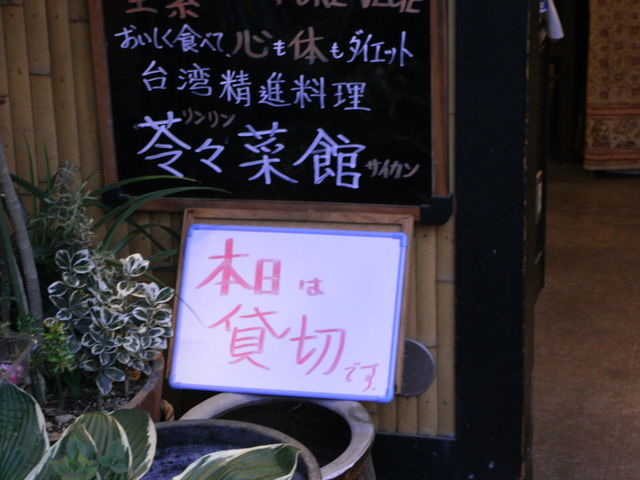 全素 PURE VEGE
おいしく食べて、心も体もダイエット
台湾精進料理
リンリン
苓々菜館 サイカン
本日は
貸切です。